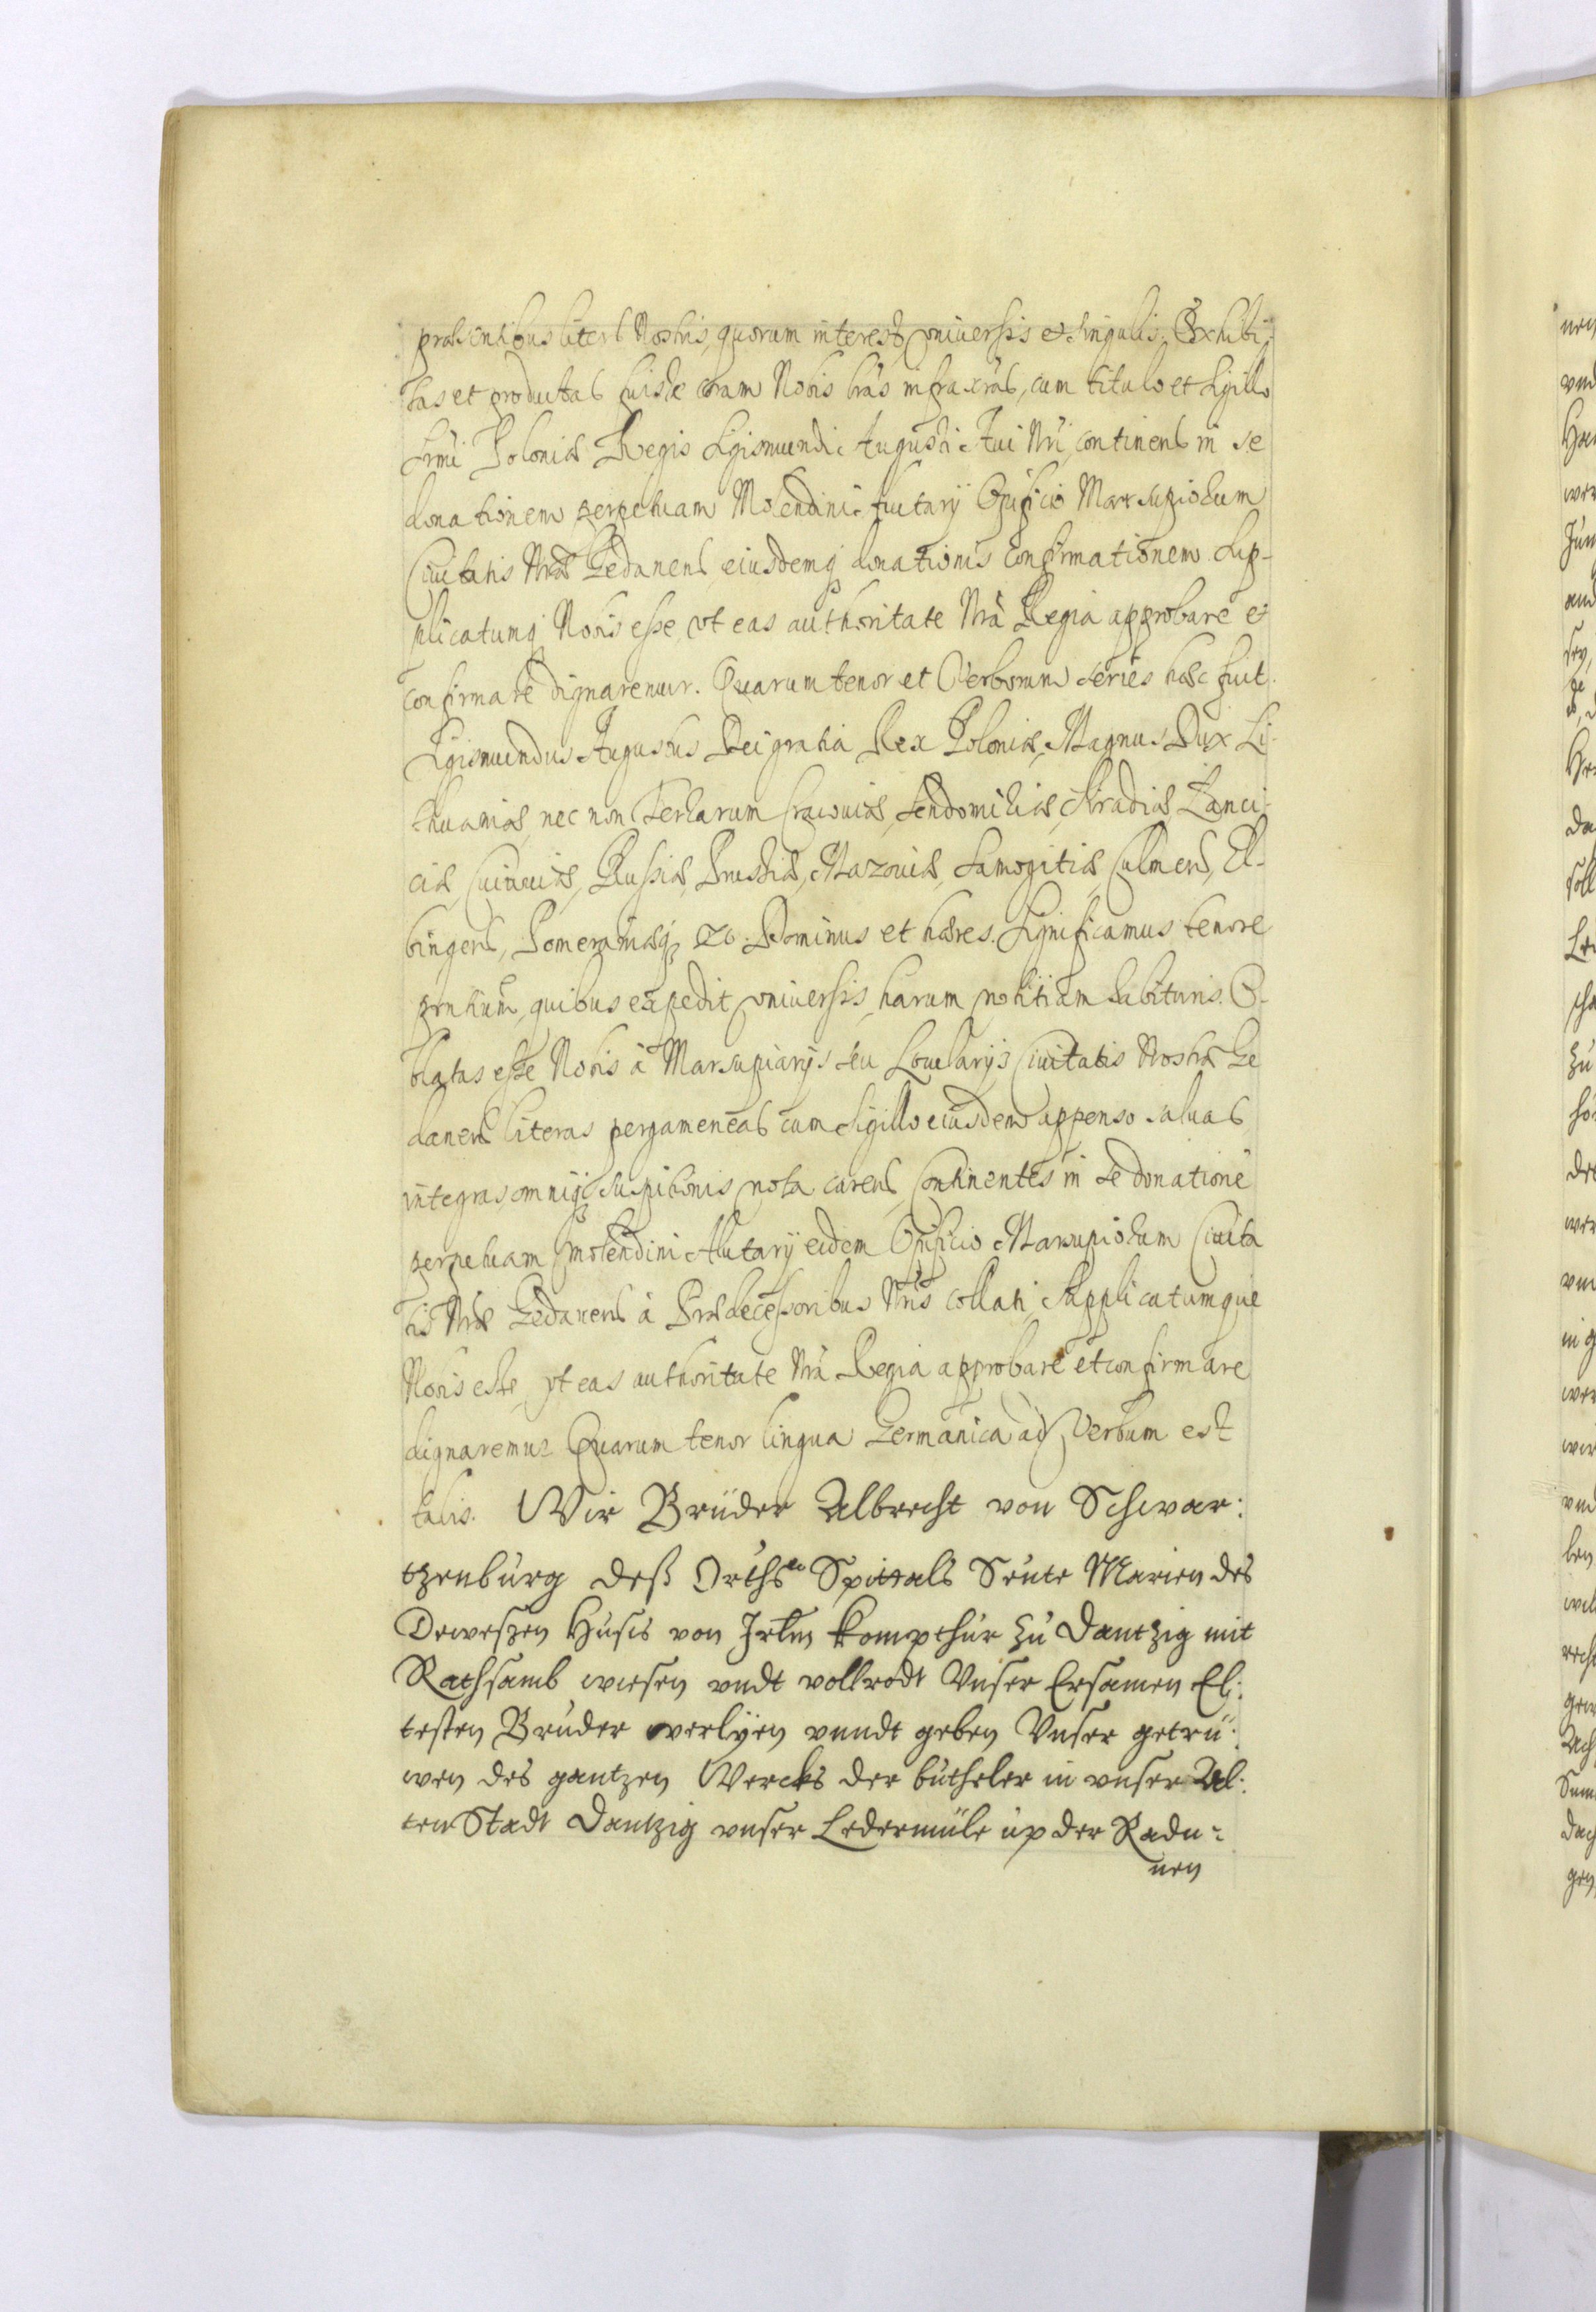 præsentibus literis Nostris, quorum interest, vniuersis et singulis, Exhibi-
tas et productas fuisse coram Nobis lras infrascras, cum titulo et sigillo
srmi Poloniæ Regis Sigismundi Augusti Aui Nri, continens in se
donationem perpetuam Molendini Alutarij Opificio Marsupiorum
Ciuitatis Nræ Gedanens, eiusdemq donationis confirmationem. Sup-
plicatumq Nobis esse, vt eas authoritate Nrâ Regia approbare et
confirmare dignaremur. Quarum tenor et Verborum series hæc fuit.
Sigismundus Augustus Dei gratia Rex Poloniæ, Magnus Dux Li-
thuaniæ, nec non Terrarum Cracouiæ, Sendomiriæ, Siradiæ, Lanci-
ciæ, Cuiauiæ, Russiæ, Prussiæ, Mazouiæ, Samogitiæ, Culmens, El-
bingens, Pomeraniæq &c. Dominus et hæres. Significamus tenore
prntium, quibus expedit, vniuersis, harum notitiam habituris. O-
blatas esse Nobis à Marsupiarijs seu Lorarijs Ciuitatis Nostræ Ge
danens literas pergameneas cum sigillo eiusdem appenso saluas
integras, omniq suspitionis nota carens, Continentes in se donatione
perpetuam molendini Alutarij eidem Opificio Marsupiorum Ciuita
tis Nræ Gedanens à Prædecessoribus Nris collati, Supplicatumque
Nobis esse, vt eas authoritate Nrâ Regia approbare et confirmare
dignaremur Quarum tenor lingua Germanica ad Verbum est
talis. Wir Brüder Albrecht von Schwar:
tzenburg deß Orths Spittals Sente Marien des
Deweszen Huses von Jrlm Kompthur zu Dantzig mit
Rathsamb wiesen vndt vollrodt Vnser Ersamen El:
testen Bruder verlÿen vnndt geben Vnser getru:
wen des gantzen Wercks der butheler in vnser Al:
ten Stadt Dantzig vnser Ledermüle up der Radu:
nen